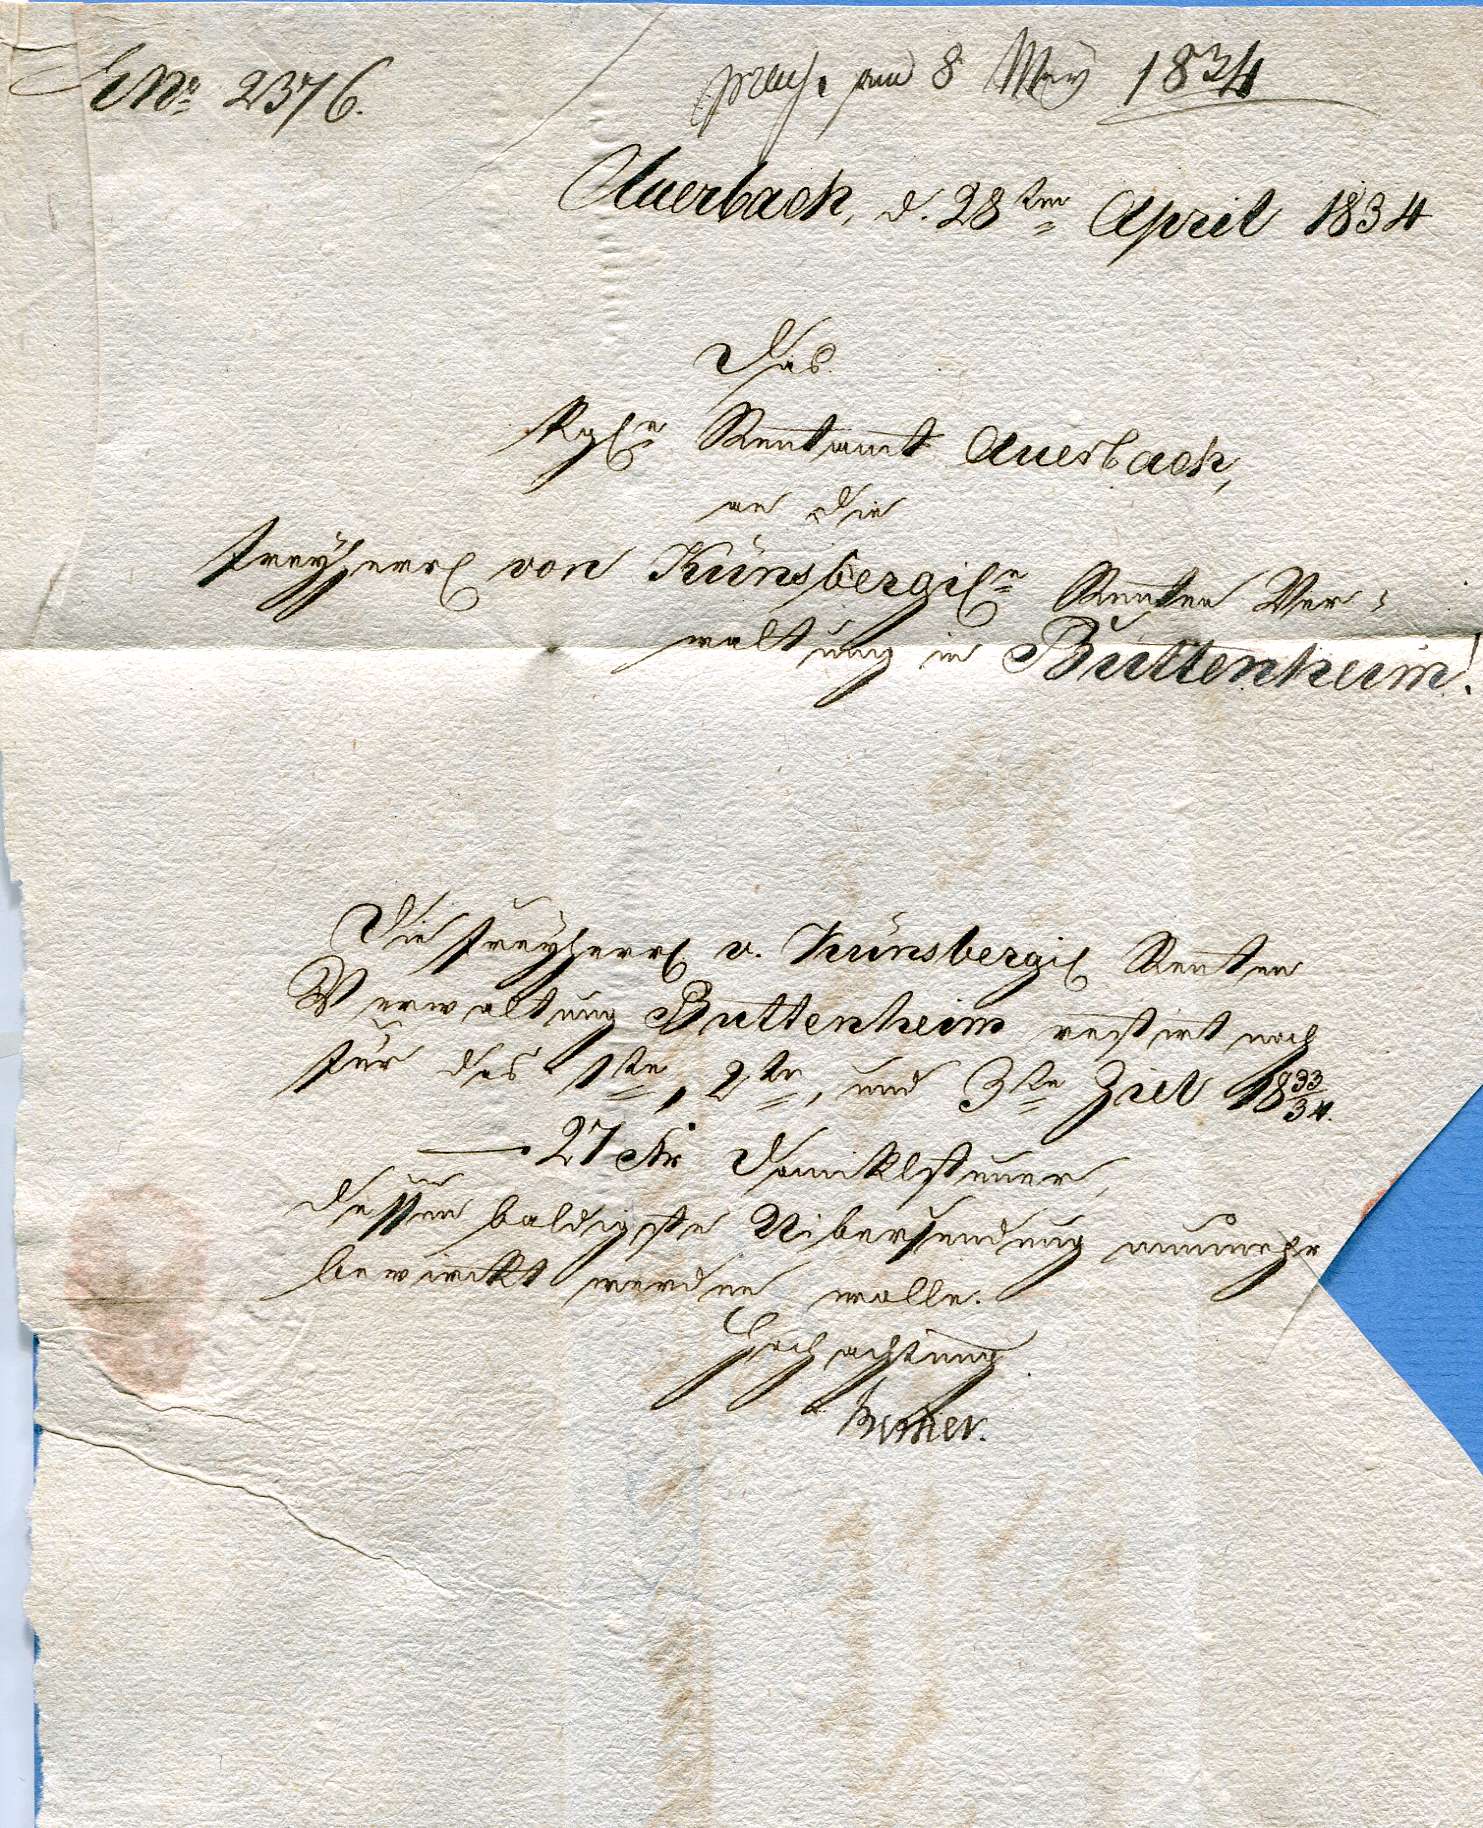 E No 2376.
praes. am 8 May 1834
Auerbach, d. 28ten April 1834
Das
Kgl. Rentamt Auerbach,
an die
Freyherrl von Künsbergisc Renten Ver-
waltung in Buttenheim!
Die Freyherrl v. Künsbergisc Renten
Verwaltung Buttenheim restirt noch
für das 1te, 2te, und 3te Ziel 1833/34.
— 27 kr Dominklsteuer,
dessen baldigste Uibersendung nunmehr
bewirkt werden wolle.
Hochachtung